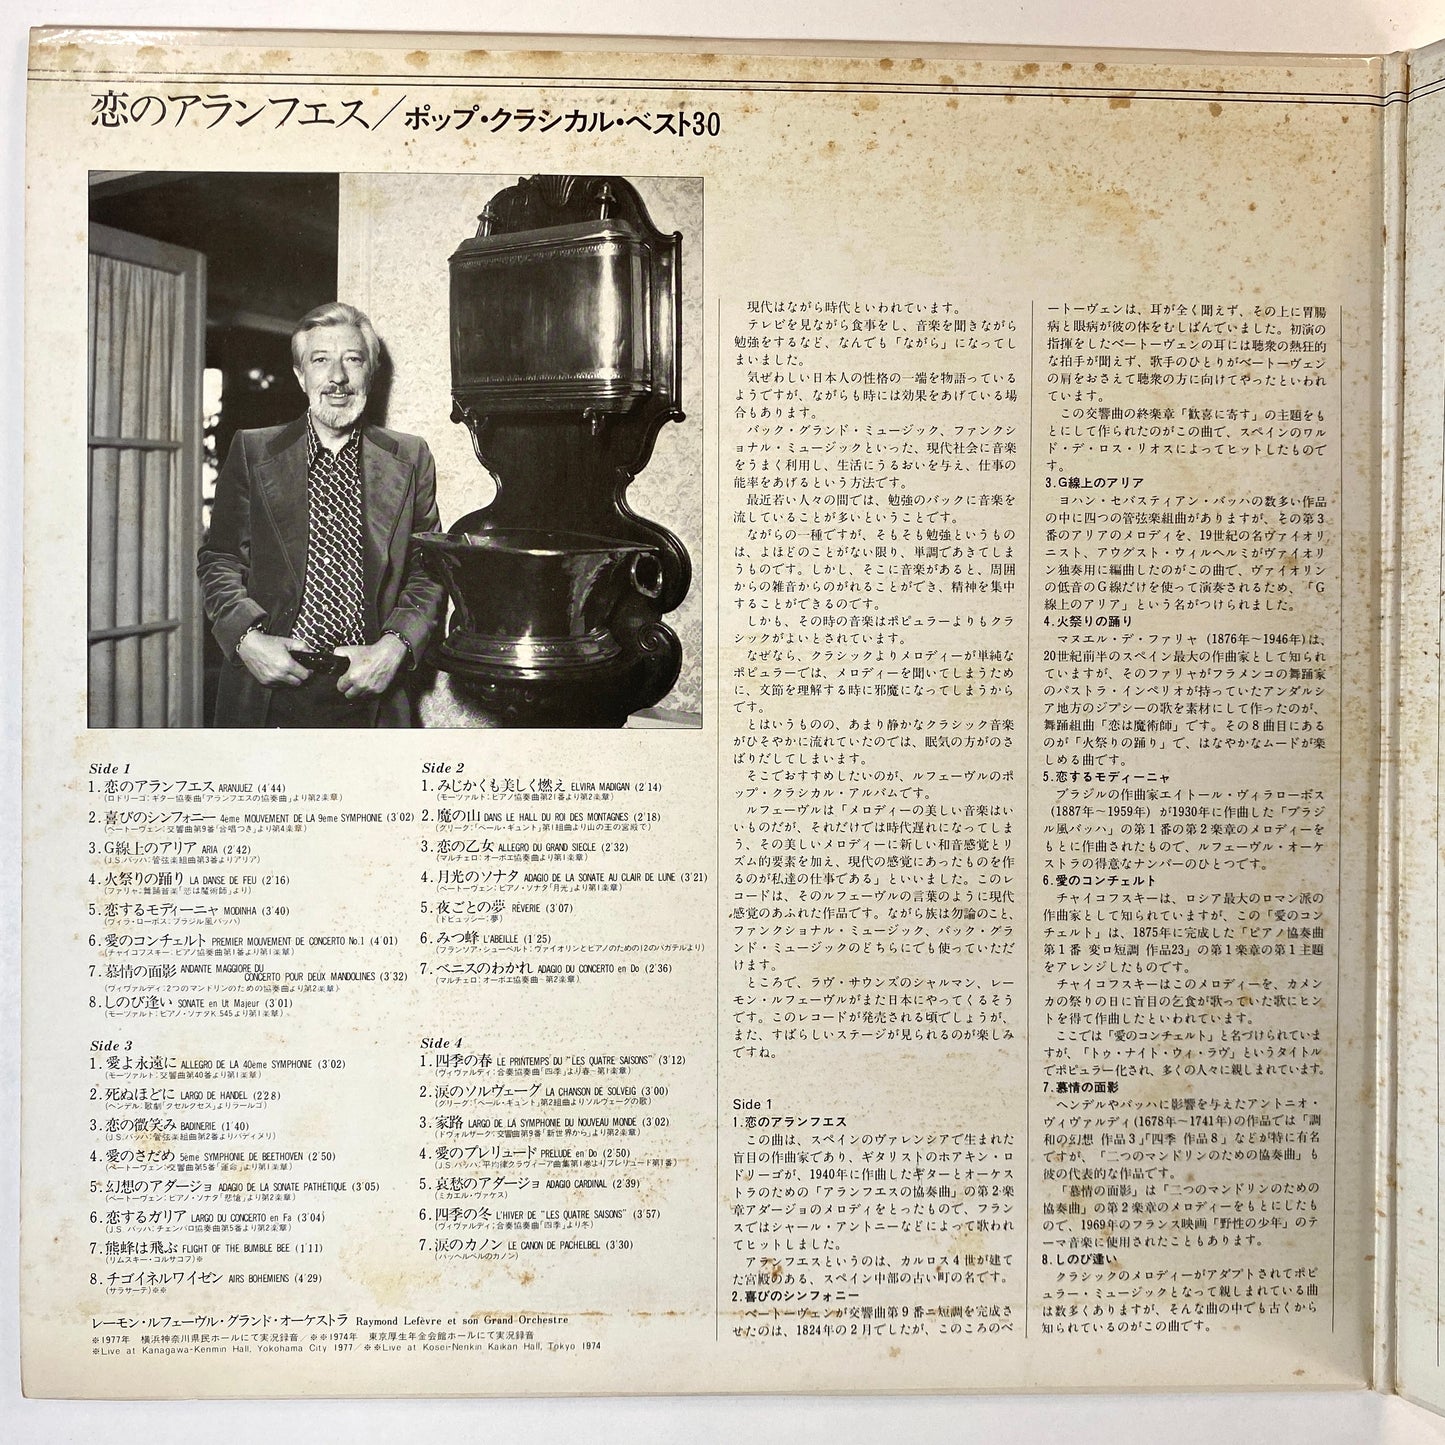 恋のアランフエス／ポップ・クラシカル・ベスト30
Side 1
1.恋のアランフエス ARANJUEZ (4'44)
(ロドリーゴ：ギター協奏曲「アランフエスの協奏曲」より第2楽章)
2.喜びのシンフォニー 4eme MOUVEMENT DE LA 9eme SYMPHONIE (3'02)
(ベートーヴェン：交響曲第9番「合唱つき」より第4楽章)
3.G線上のアリア ARIA (2'42)
(J.S.バッハ：管弦楽組曲第3番よりアリア)
4.火祭りの踊り LA DANSE DE FEU (2'16)
(ファリャ：舞踊音楽「恋は魔術師」より)
5.恋するモディーニャ MODINHA (3'40)
(ヴィラ・ローボス：ブラジル風バッハ)
6.愛のコンチェルト PREMIER MOUVEMENT DE CONCERTO No.1 (4'01)
(チャイコフスキー：ピアノ協奏曲第1番より第1楽章)
7.慕情の面影 ANDANTE MAGGIORE DU
CONCERTO POUR DEUX MANDOLINES (3'32)
(ヴィヴァルディ：2つのマンドリンのための協奏曲より第2楽章)
8.しのび逢い SONATE en Ut Majeur (3'01)
(モーツァルト：ピアノ・ソナタK.545より第1楽章)
Side 2
1.みじかくも美しく燃え ELVIRA MADIGAN (2'14)
(モーツァルト：ピアノ協奏曲第21番より第2楽章)
2.魔の山 DANS LE HALL DU ROI DES MONTAGNES (2'18)
(グリーク：「ペール・ギュント」第1組曲より山の王の宮殿で)
3.恋の乙女 ALLEGRO DU GRAND SIECLE (2'32)
(マルチェロ：オーボエ協奏曲より第1楽章)
4.月光のソナタ ADAGIO DE LA SONATE AU CLAIR DE LUNE (3'21)
(ベートーヴェン：ピアノ・ソナタ「月光」より第1楽章)
5.夜ごとの夢 RÉVERIE (3'07)
(ドビュッシー：夢)
6.みつ蜂 L'ABEILLE (1'25)
(フランソア・シューベルト：ヴァイオリンとピアノのための12のバガテルより)
7.ベニスのわかれ ADAGIO DU CONCERTO en Do (2'36)
(マルチェロ：オーボエ協奏曲〜第2楽章)
Side 3
1.愛よ永遠に ALLEGRO DE LA 40eme SYMPHONIE (3'02)
(モーツァルト：交響曲第40番より第1楽章)
2.死ぬほどに LARGO DE HANDEL (2'28)
(ヘンデル：歌劇「クセルクセス」よりラールゴ)
3.恋の微笑み BADINERIE (1'40)
(J.S.バッハ：管弦楽組曲第2番よりバディメリ)
4.愛のさだめ 5ème SYMPHONIE DE BEETHOVEN (2'50)
(ベートーヴェン：交響曲第5番「運命」より第1楽章)
5.幻想のアダージョ ADAGIO DE LA SONATE PATHÉTIQUE (3'05)
(ベートーヴェン：ピアノ・ソナタ「悲愴」より第2楽章)
6.恋するガリア LARGO DU CONCERTO en Fa (3'04)
(J.S.バッハ：チェンバロ協奏曲第5番より第2楽章)
7.熊蜂は飛ぶ FLIGHT OF THE BUMBLE BEE (1'11)
(リムスキー・コルサコフ)※
8.チゴイネルワイゼン AIRS BOHEMIENS (4'29)
(サラサーテ)※※
Side 4
1.四季の春 LE PRINTEMPS DU "LES QUATRE SAISONS" (3'12)
(ヴィヴァルディ：合奏協奏曲「四季」より春〜第1楽章)
2.涙のソルヴェーグ LA CHANSON DE SOLVEIG (3'00)
(グリーグ：「ペール・ギュント」第2組曲よりソルヴェーグの歌)
3.家路 LARGO DE LA SYMPHONIE DU NOUVEAU MONDE (3'02)
(ドヴォルザーク：交響曲第9番「新世界から」より第2楽章)
4.愛のプレリュード PRELUDE en Do (2'50)
(J.S.バッハ：平均律クラヴィーア曲集第1巻よりプレリュード第1番)
5.哀愁のアダージョ ADAGIO CARDINAL (2'39)
(ミカエル・ヴァケス)
6.四季の冬 L'HIVER DE "LES QUATRE SAISONS" (3'57)
(ヴィヴァルディ：合奏協奏曲「四季」より冬)
7.涙のカノン LE CANON DE PACHELBEL (3'30)
(パッヘルベルのカノン)
レーモン・ルフェーヴル・グランド・オーケストラ Raymond Lefèvre et son Grand Orchestre
※1977年 横浜神奈川県民ホールにて実況録音／※※1974年 東京厚生年金会館ホールにて実況録音
※Live at Kanagawa-Kenmin Hall, Yokohama City 1977／※※Live at Kosei-Nenkin Kaikan Hall, Tokyo 1974
現代はながら時代といわれています。
テレビを見ながら食事をし、音楽を聞きながら
勉強をするなど、なんでも「ながら」になってし
まいました。
気ぜわしい日本人の性格の一端を物語っている
ようですが、ながらも時には効果をあげている場
合もあります。
バック・グランド・ミュージック、ファンクシ
ョナル・ミュージックといった、現代社会に音楽
をうまく利用し、生活にうるおいを与え、仕事の
能率をあげるという方法です。
最近若い人々の間では、勉強のバックに音楽を
流していることが多いということです。
ながらの一種ですが、そもそも勉強というもの
は、よほどのことがない限り、単調であきてしま
うものです。しかし、そこに音楽があると、周囲
からの雑音からのがれることができ、精神を集中
することができるのです。
しかも、その時の音楽はポピュラーよりもクラ
シックがよいとされています。
なぜなら、クラシックよりメロディーが単純な
ポピュラーでは、メロディーを聞いてしまうため
に、文節を理解する時に邪魔になってしまうから
です。
とはいうものの、あまり静かなクラシック音楽
がひそやかに流れていたのでは、眠気の方がのさ
ばりだしてしまいます。
そこでおすすめしたいのが、ルフェーヴルのポ
ップ・クラシカル・アルバムです。
ルフェーヴルは「メロディーの美しい音楽はい
いものだが、それだけでは時代遅れになってしま
う、その美しいメロディーに新しい和音感覚とリ
ズム的要素を加え、現代の感覚にあったものを作
るのが私達の仕事である」といいました。このレ
コードは、そのルフェーヴルの言葉のように現代
感覚のあふれた作品です。ながら族は勿論のこと、
ファンクショナル・ミュージック、バック・グラ
ンド・ミュージックのどちらにでも使っていただ
けます。
ところで、ラヴ・サウンズのシャルマン、レー
モン・ルフェーヴルがまた日本にやってくるそう
です。このレコードが発売される頃でしょうが、
また、すばらしいステージが見られるのが楽しみ
ですね。
Side 1
1.恋のアランフエス
この曲は、スペインのヴァレンシアで生まれた
盲目の作曲家であり、ギタリストのホアキン・ロ
ドリーゴが、1940年に作曲したギターとオーケス
トラのための「アランフエスの協奏曲」の第2楽
章アダージョのメロディをとったもので、フラン
スではシャール・アントニーなどによって歌われ
てヒットしました。
アランフエスというのは、カルロス4世が建て
た宮殿のある、スペイン中部の古い町の名です。
2.喜びのシンフォニー
ベートーヴェンが交響曲第9番ニ短調を完成さ
せたのは、1824年の2月でしたが、このころのベ
ートーヴェンは、耳が全く聞えず、その上に胃腸
病と眼病が彼の体をむしばんでいました。初演の
指揮をしたベートーヴェンの耳には聴衆の熱狂的
な拍手が聞えず、歌手のひとりがベートーヴェン
の肩をおさえて聴衆の方に向けてやったといわれ
ています。
この交響曲の終楽章「歓喜に寄す」の主題をも
とにして作られたのがこの曲で、スペインのワル
ド・デ・ロス・リオスによってヒットしたもので
す。
3.G線上のアリア
ヨハン・セバスティアン・バッハの数多い作品
の中に四つの管弦楽組曲がありますが、その第3
番のアリアのメロディを、19世紀の名ヴァイオリ
ニスト、アウグスト・ウィルヘルミがヴァイオリ
ン独奏用に編曲したのがこの曲で、ヴァイオリン
の低音のG線だけを使って演奏されるため、「G
線上のアリア」という名がつけられました。
4.火祭りの踊り
マヌエル・デ・ファリャ (1876年〜1946年)は、
20世紀前半のスペイン最大の作曲家として知られ
ていますが、そのファリャがフラメンコの舞踊家
のパストラ・インペリオが持っていたアンダルシ
ア地方のジプシーの歌を素材にして作ったのが、
舞踊組曲「恋は魔術師」です。その8曲目にある
のが「火祭りの踊り」で、はなやかなムードが楽
しめる曲です。
5.恋するモディーニャ
ブラジルの作曲家エイトール・ヴィラローボス
(1887年〜1959年) が1930年に作曲した「ブラジ
ル風バッハ」の第1番の第2楽章のメロディーを
もとに作曲されたもので、ルフェーヴル・オーケ
ストラの得意なナンバーのひとつです。
6.愛のコンチェルト
チャイコフスキーは、ロシア最大のロマン派の
作曲家として知られていますが、この「愛のコン
チェルト」は、1875年に完成した「ピアノ協奏曲
第1番 変ロ短調 作品23」の第1楽章の第1主題
をアレンジしたものです。
チャイコフスキーはこのメロディーを、カメン
カの祭りの日に盲目の乞食が歌っていた歌にヒン
トを得て作曲したといわれています。
ここでは「愛のコンチェルト」と名づけられていま
すが、「トゥ・ナイト・ウィ・ラヴ」というタイトル
でポピュラー化され、多くの人々に親しまれています。
7.慕情の面影
ヘンデルやバッハに影響を与えたアントニオ・
ヴィヴァルディ(1678年〜1741年)の作品では「調
和の幻想 作品3」「四季 作品8」などが特に有名
ですが、「二つのマンドリンのための協奏曲」も
彼の代表的な作品です。
「慕情の面影」は「二つのマンドリンのための
協奏曲」の第2楽章のメロディーをもとにしたも
ので、1969年のフランス映画「野性の少年」のテ
ーマ音楽に使用されたこともあります。
8.しのび逢い
クラシックのメロディーがアダプトされてポピ
ュラー・ミュージックとなって親しまれている曲
は数多くありますが、そんな曲の中でも古くから
知られているのがこの曲です。